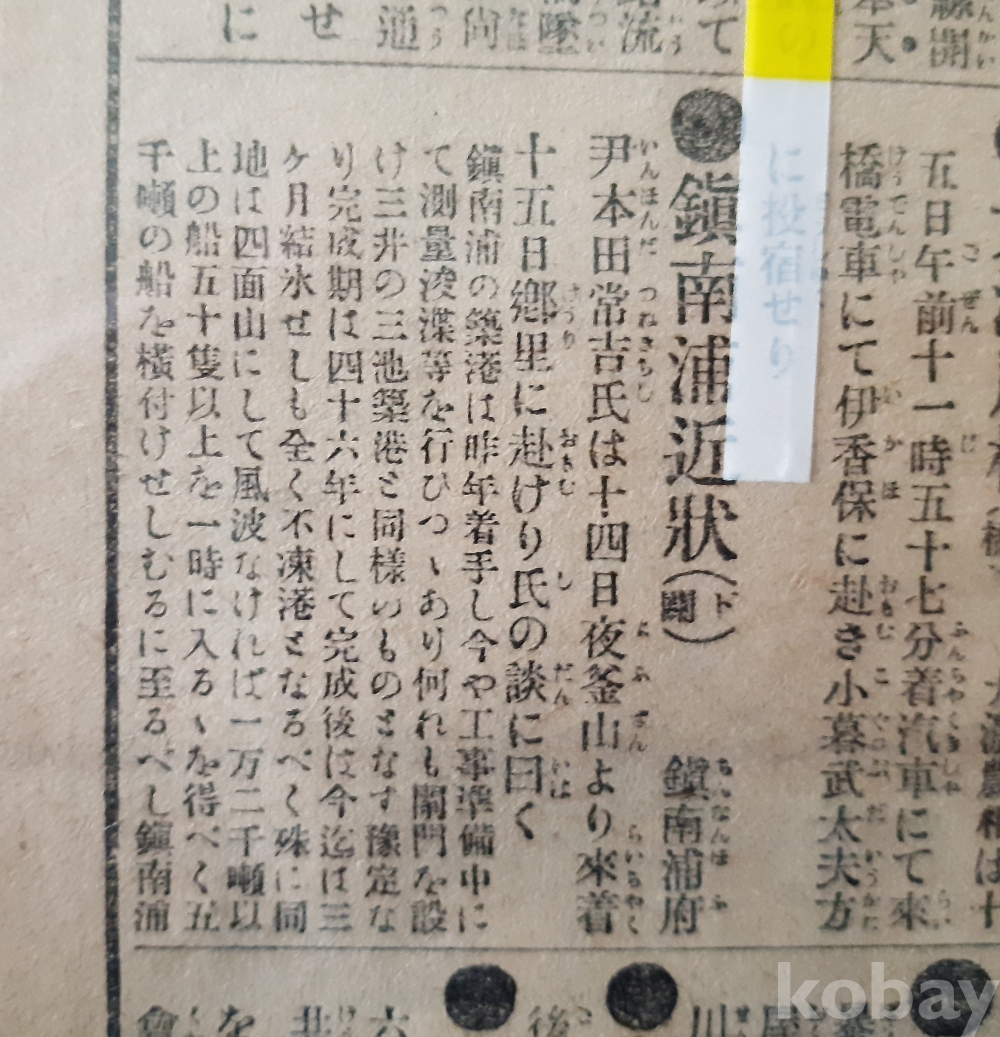 五日午前十一時五十七分着汽車にて來
橋電車にて伊香保に赴き小暮武太夫方
に投宿せり
●鎭南浦近狀(ド鬪) 鎭南浦府
尹本田常吉氏は十四日夜釜山より來着
十五日鄕里に赴けり氏の談に曰く
鎭南浦の築港は昨年着手し今や工事準備中に
て測量浚渫等を行ひつゝあり何れも閘門を設
け三井の三池築港と同樣のものとなす豫定な
り完成期は四十六年にして完成後は今迄は三
ケ月結氷せしも全く不凍港となるべく殊に同
地は四面山にして風波なければ一万二千噸以
上の船五十隻以上を一時に入るゝを得べく五
千噸の船を橫付けせしむるに至るべし鎭南浦
kobay